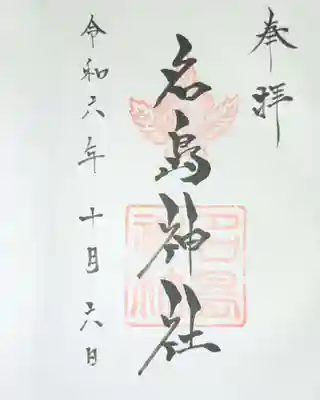 奉拝
名島神社
令和六年十月六日
名島神社